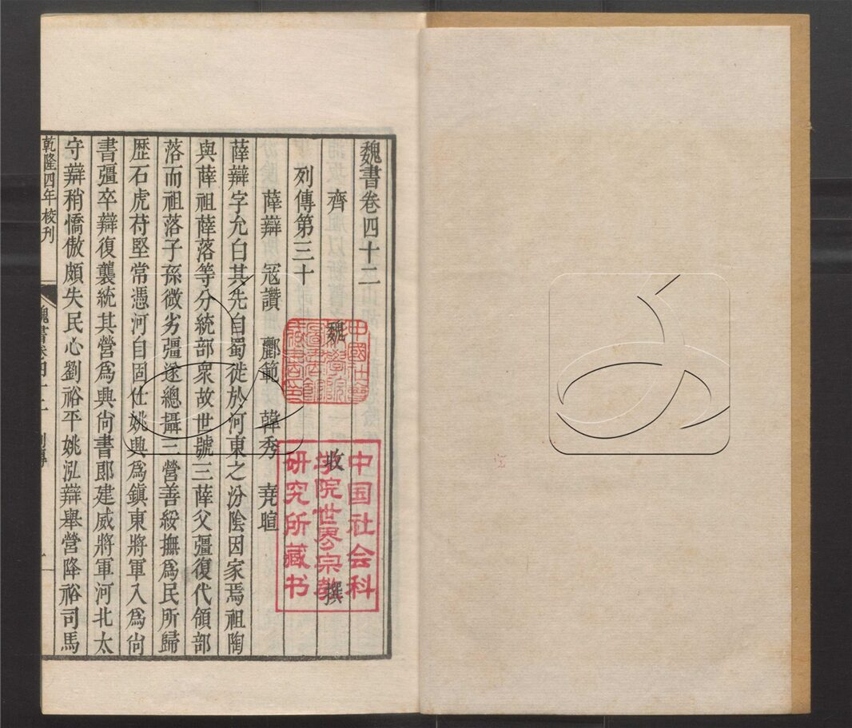 魏書卷四十二
齊 魏 收 撰
列傳第三十
薛辯 寇讚 酈範 韓秀 堯暄
薛辯字允白其先自蜀徙於河東之汾陰因家焉祖陶
與薛祖薛落等分統部衆故世號三薛父彊復代領部
落而祖落子孫微劣彊遂總攝三營善綏撫爲民所歸
歴石虎苻堅常憑河自固仕姚興爲鎮東將軍入爲尚
書彊卒辯復襲統其營爲興尚書郎建威將軍河北太
守辯稍憍傲頗失民心劉裕平姚泓辯舉營降裕司馬
乾隆四年校刊
魏書卷四十二 列傳 一
中国社会科
学院世界宗教
研究所藏书